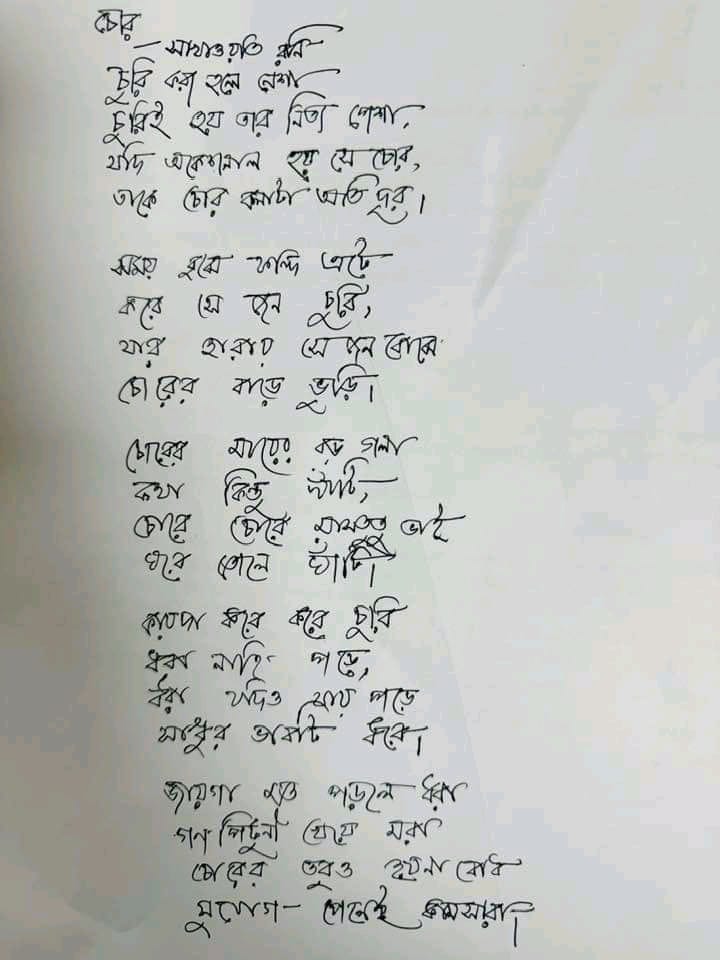 চোর
— সাখাওয়াত রনি
চুরি করা হলে নেশা
চুরিই হয় তার নিত্য পেশা,
যদি হয় সে চোর,
তাকে চোর বলাটা অতি দূর।
সময় বুঝে ফন্দি এটে
করে যে জন চুরি,
যার হারায় সে জন বোঝে
চোরের বাড়ে ভুড়ি।
চোরের মায়ের বড় গলা
কথা কিন্তু খাটি,
চোরে চোরে মাসতুতু ভাই
ঘরে তোলে ঘাঁটি।
কায়দা করে করে চুরি
ধরা নাহি পড়ে,
ধরা যদিও যায় পড়ে
সাধুর ভাবটি ধরে।
জায়গা মত পড়লে ধরা
গণ পিটুনী খেয়ে মরা
চোরের তবুও হয়না বোধ
সুযোগ- পেলেই কামসারা।